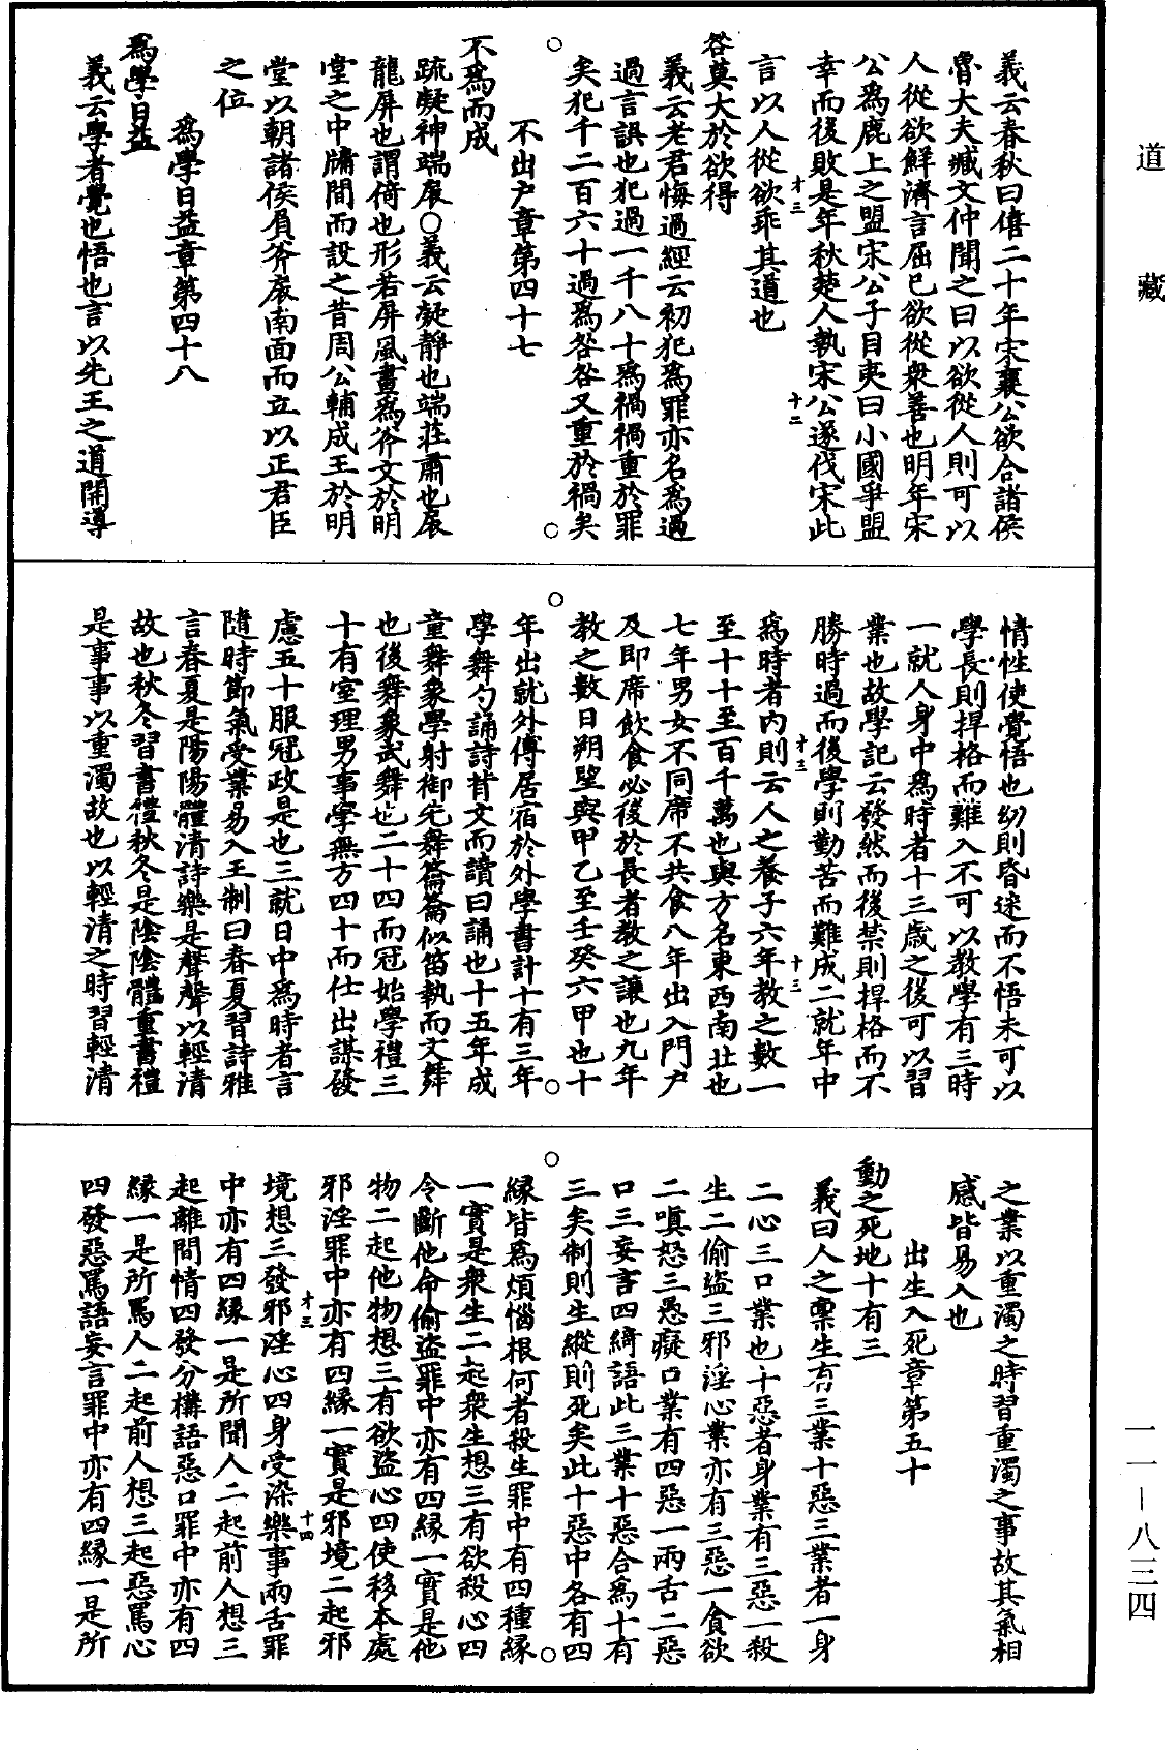 道藏
義云春秋曰僖二十年宋襄公欲合諸侯
魯大夫臧文仲聞之曰以欲從人則可以
人從欲鮮濟言屈己欲從衆善也明年宋
公爲鹿上之盟宋公子目夷曰小國爭盟
幸而後敗是年秋楚人執宋公遂伐宋此
才三 十二
言以人從欲乖其道也
咎莫大於欲得
義云老君悔過經云初犯爲罪亦名爲過
過言誤也犯過一千八十爲禍禍重於罪
矣犯千二百六十過爲咎咎又重於禍矣
不出户章第四十七
不爲而成
疏凝神端扆○義云凝靜也端莊肅也扆
龍屏也謂倚也形若屏風畫爲斧文於明
堂之中牖間而設之昔周公輔成王於明
堂以朝諸侯負斧扆南面而立以正君臣
之位
爲學日益章第四十八
爲學日益
義云學者覺也悟也言以先王之道開導
情性使覺悟也幼則昏迷而不悟未可以
學長則捍格而難入不可以教學有三時
一就人身中爲時者十三歲之後可以習
業也故學記云發然而後禁則捍格而不
勝時過而後學則勤苦而難成二就年中
才三 十三
爲時者内則云人之養子六年教之數一
至十十至百千萬也與方名東西南北也
七年男女不同席不共食八年出入門户
及即席飲食必後於長者教之讓也九年
教之數日朔望與甲乙至壬癸六甲也十
年出就外傅居宿於外學書計十有三年
學舞勺誦詩背文而讀曰誦也十五年成
童舞象學射御先舞籥籥似笛執而文舞
也後舞象武舞也二十四而冠始學禮三
十有室理男事學無方四十而仕出謀發
慮五十服冠政是也三就日中爲時者言
隨時節氣受業易入王制曰春夏習詩雅
言春夏是陽陽體清詩樂是聲聲以輕清
故也秋冬習書禮秋冬是陰陰體重書禮
是事事以重濁故也以輕清之時習輕清
之業以重濁之時習重濁之事故其氣相
感皆易入也
出生入死章第五十
動之死地十有三
義曰人之禀生有三業十惡三業者一身
二心三口業也十惡者身業有三惡一殺
生二偷盜三邪淫心業亦有三惡一貪欲
二嗔怒三愚癡口業有四惡一兩舌二惡
口三妄言四綺語此三業十惡合爲十有
三矣制則生縱則死矣此十惡中各有四
緣皆爲煩惱根何者殺生罪中有四種緣
一實是衆生二起衆生想三有欲殺心四
令斷他命偷盜罪中亦有四緣一實是他
物二起他物想三有欲盜心四使移本處
邪淫罪中亦有四緣一實是邪境二起邪
才三 十四
境想三發邪淫心四身受染樂事兩舌罪
中亦有四緣一是所聞人二起前人想三
起離間情四發分構語惡口罪中亦有四
緣一是所罵人二起前人想三起惡罵心
四發惡罵語妄言罪中亦有四緣一是所
一一—八三四